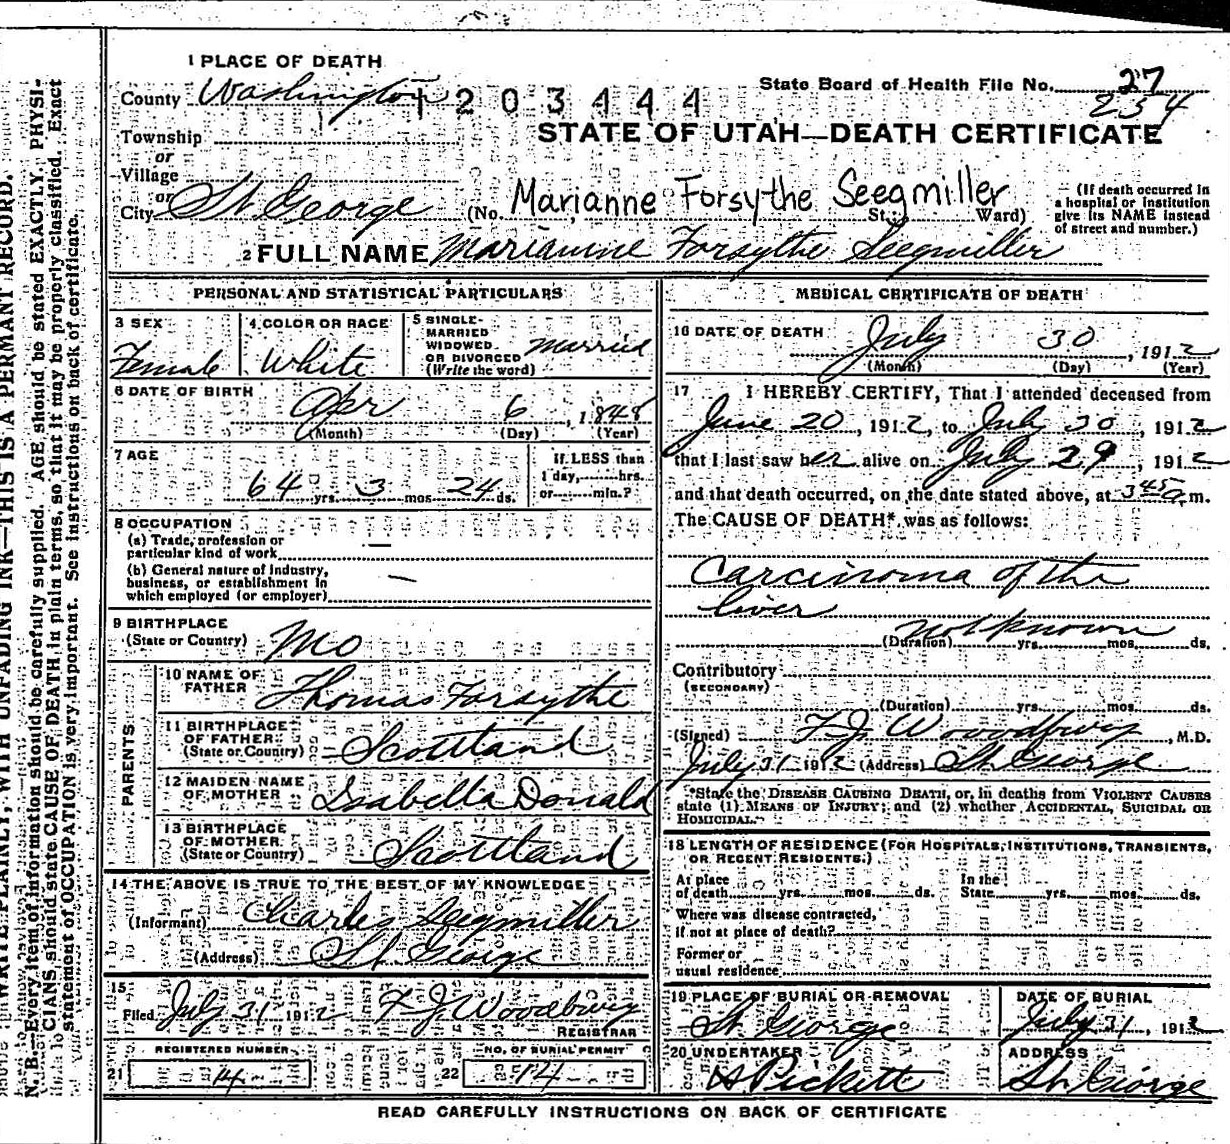 1 PLACE OF DEATH
County Washington 1203444
State Board of Health File No. 27
254
Township
or
Village
or
City St George
STATE OF UTAH—DEATH CERTIFICATE
(No. Marianne Forsythe Seegmiller St.; Ward)
(If death occurred in a hospital or institution give its NAME instead of street and number.)
2 FULL NAME Marianne Forsythe Seegmiller
PERSONAL AND STATISTICAL PARTICULARS
3 SEX
Female
4 COLOR OR RACE
White
5 SINGLE-
MARRIED
WIDOWED
OR DIVORCED
(Write the word)
Married
6 DATE OF BIRTH
Apr 6, 1848
(Month) (Day) (Year)
7 AGE
64 yrs. 3 mos. 24 ds.
If LESS than
1 day, hrs.
or min.?
8 OCCUPATION
(a) Trade, profession or
particular kind of work —
(b) General nature of industry,
business, or establishment in
which employed (or employer) —
9 BIRTHPLACE
(State or Country) Mo
PARENTS
10 NAME OF
FATHER
Thomas Forsythe
11 BIRTHPLACE
OF FATHER
(State or Country)
Scottland
12 MAIDEN NAME
OF MOTHER
Isabella Donald
13 BIRTHPLACE
OF MOTHER
(State or Country)
Scottland
14 THE ABOVE IS TRUE TO THE BEST OF MY KNOWLEDGE
(Informant) Charles Seegmiller
(Address) St George
15
Filed July 31 1912 F. J. Woodbury
REGISTRAR
REGISTERED NUMBER
21 14
NO. OF BURIAL PERMIT
22 14
MEDICAL CERTIFICATE OF DEATH
16 DATE OF DEATH
July 30, 1912
(Month) (Day) (Year)
17 I HEREBY CERTIFY, That I attended deceased from
June 20, 1912, to July 30, 1912
that I last saw her alive on July 29, 1912
and that death occurred, on the date stated above, at 3 45 a.m.
The CAUSE OF DEATH* was as follows:
Carcinoma of the
liver
not known
(Duration) yrs. mos. ds.
Contributory
(SECONDARY)
(Duration) yrs. mos. ds.
(Signed) F. J. Woodbury, M.D.
July 31 1912 (Address) St. George
*State the DISEASE CAUSING DEATH, or, in deaths from VIOLENT CAUSES
state (1) MEANS OF INJURY; and (2) whether ACCIDENTAL, SUICIDAL OR
HOMICIDAL.
18 LENGTH OF RESIDENCE (FOR HOSPITALS, INSTITUTIONS, TRANSIENTS,
OR RECENT RESIDENTS.)
At place
of death yrs. mos. ds.
In the
State yrs. mos. ds.
Where was disease contracted,
if not at place of death?
Former or
usual residence
19 PLACE OF BURIAL OR REMOVAL
St George
DATE OF BURIAL
July 31, 1912
20 UNDERTAKER
A Pickett
ADDRESS
St. George
READ CAREFULLY INSTRUCTIONS ON BACK OF CERTIFICATE
WRITE PLAINLY, WITH UNFADING INK—THIS IS A PERMANT RECORD.
N. B.—Every item of information should be carefully supplied. AGE should be stated EXACTLY. PHYSI-
CIANS should state CAUSE OF DEATH in plain terms, so that it may be properly classified. Exact
statement of OCCUPATION is very important. See instructions on back of certificate.